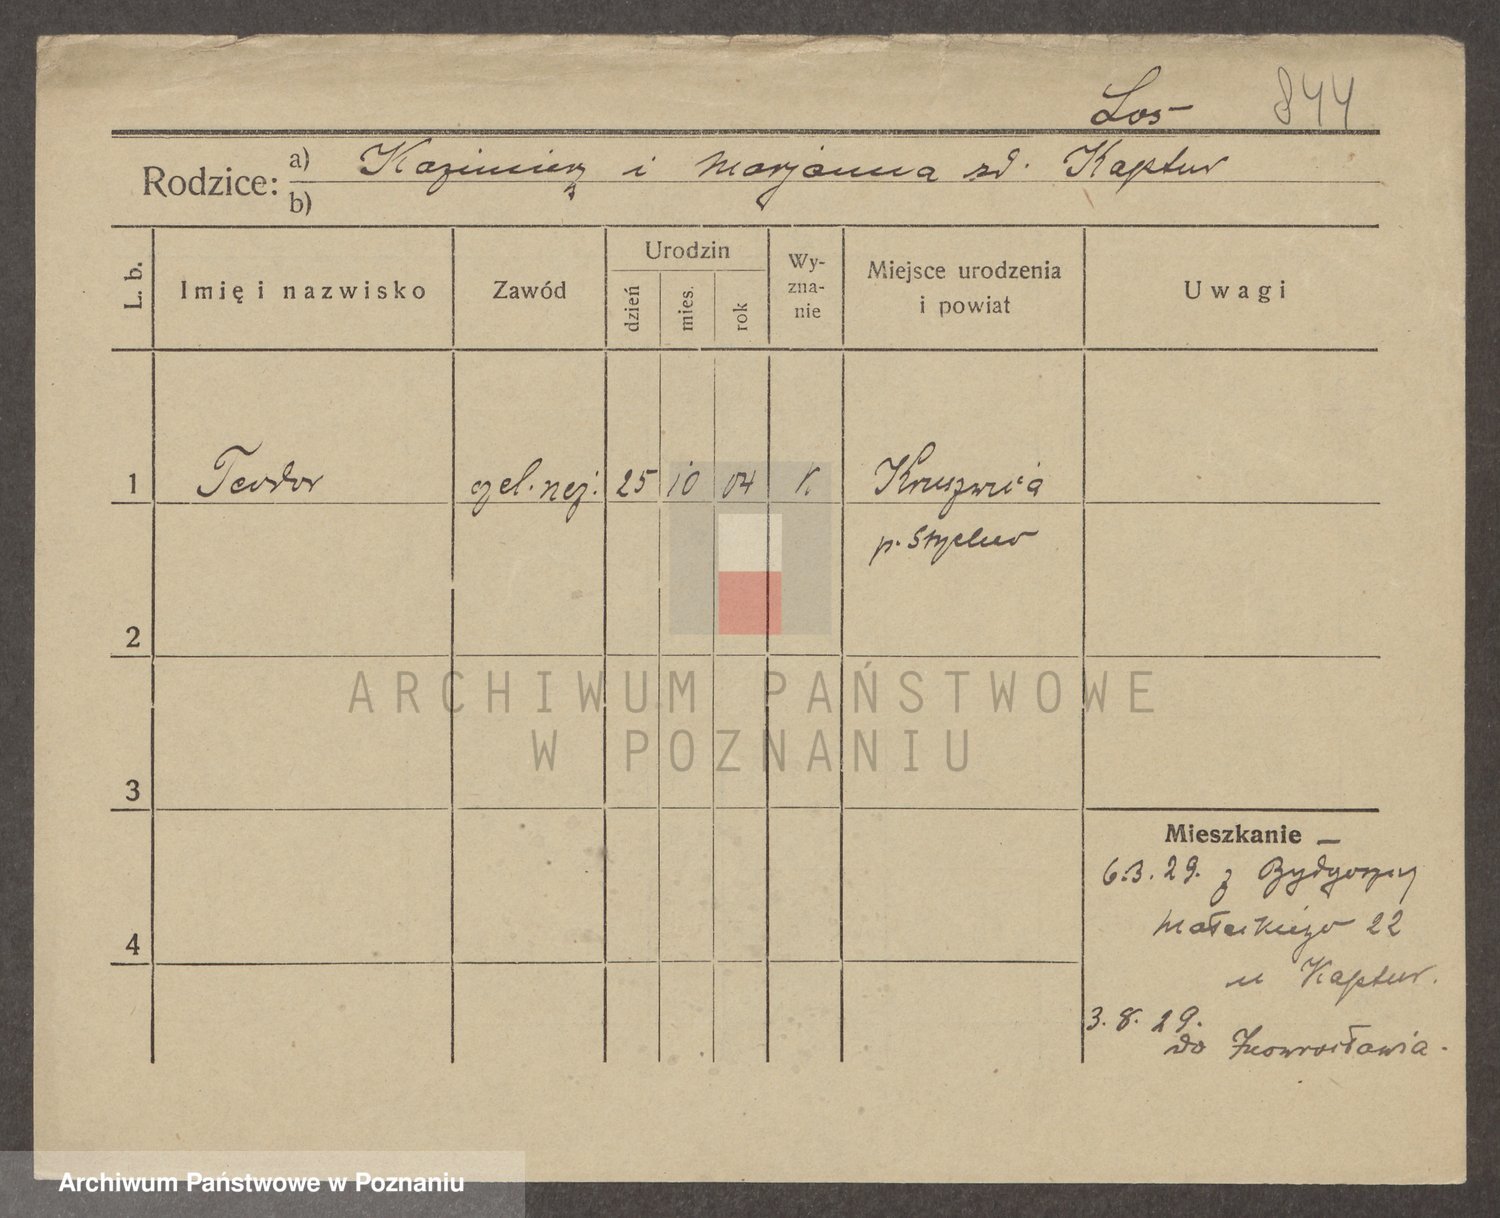 Los 844
Rodzice: a) Kazimierz i Marjanna zd. Kaptur
b)
L. b.
Imię i nazwisko
Zawód
Urodzin
dzień
mies.
rok
Wy-
zna-
nie
Miejsce urodzenia
i powiat
Uwagi
1 Teodor czel. rzeź. 25 10 04 k Kruszwica
p. Strzelno
2
3
4
Mieszkanie –
6.3.29. z Bydgoszczy
Małeckiego 22
u Kaptur.
3.8.29.
do Inowrocławia.
ARCHIWUM PAŃSTWOWE
W POZNANIU
Archiwum Państwowe w Poznaniu